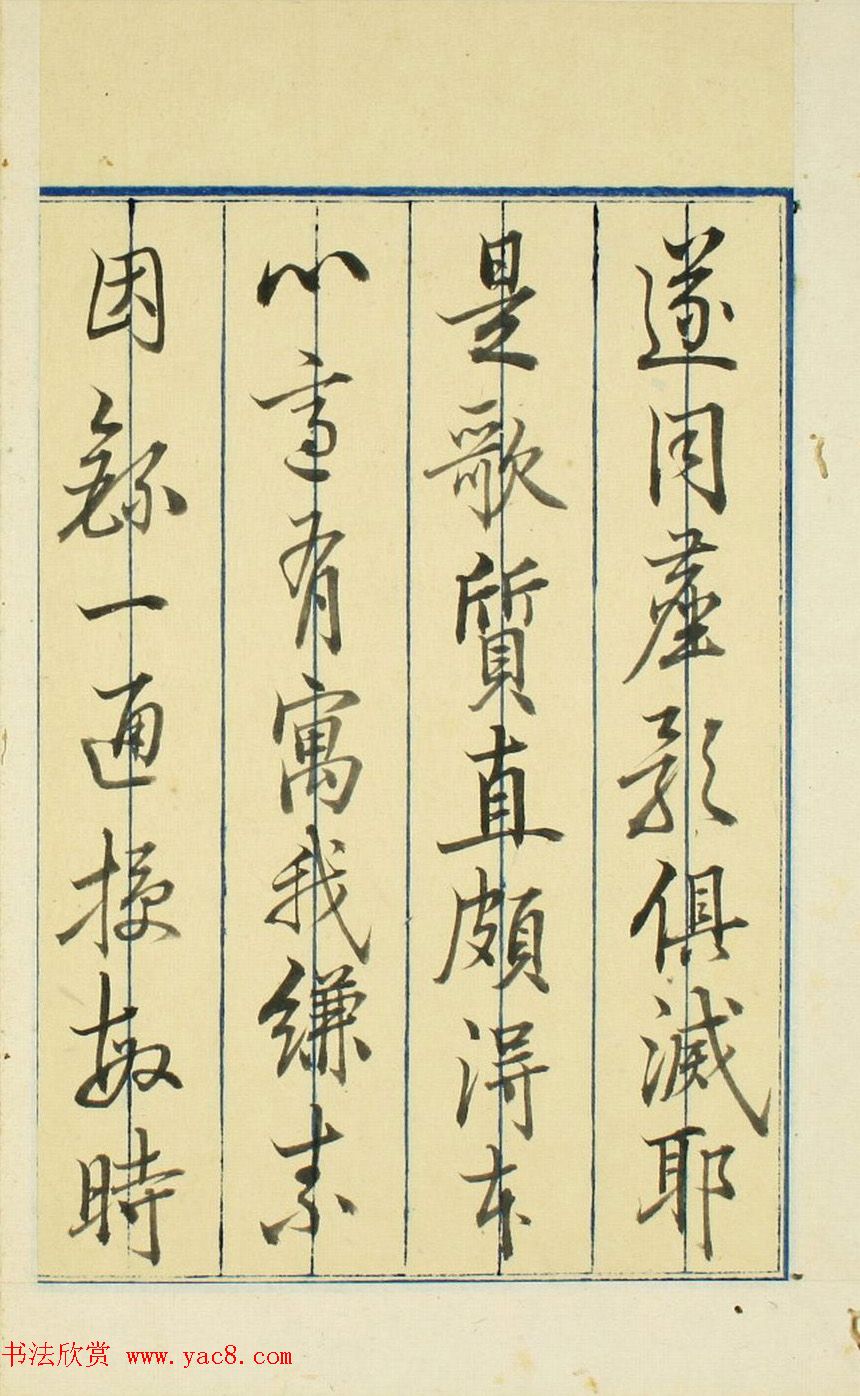 遂同塵影俱滅耶
是歌質直頗得本
心適有寓我縑素
因録一通授敏時
书法欣赏 www.yac8.com